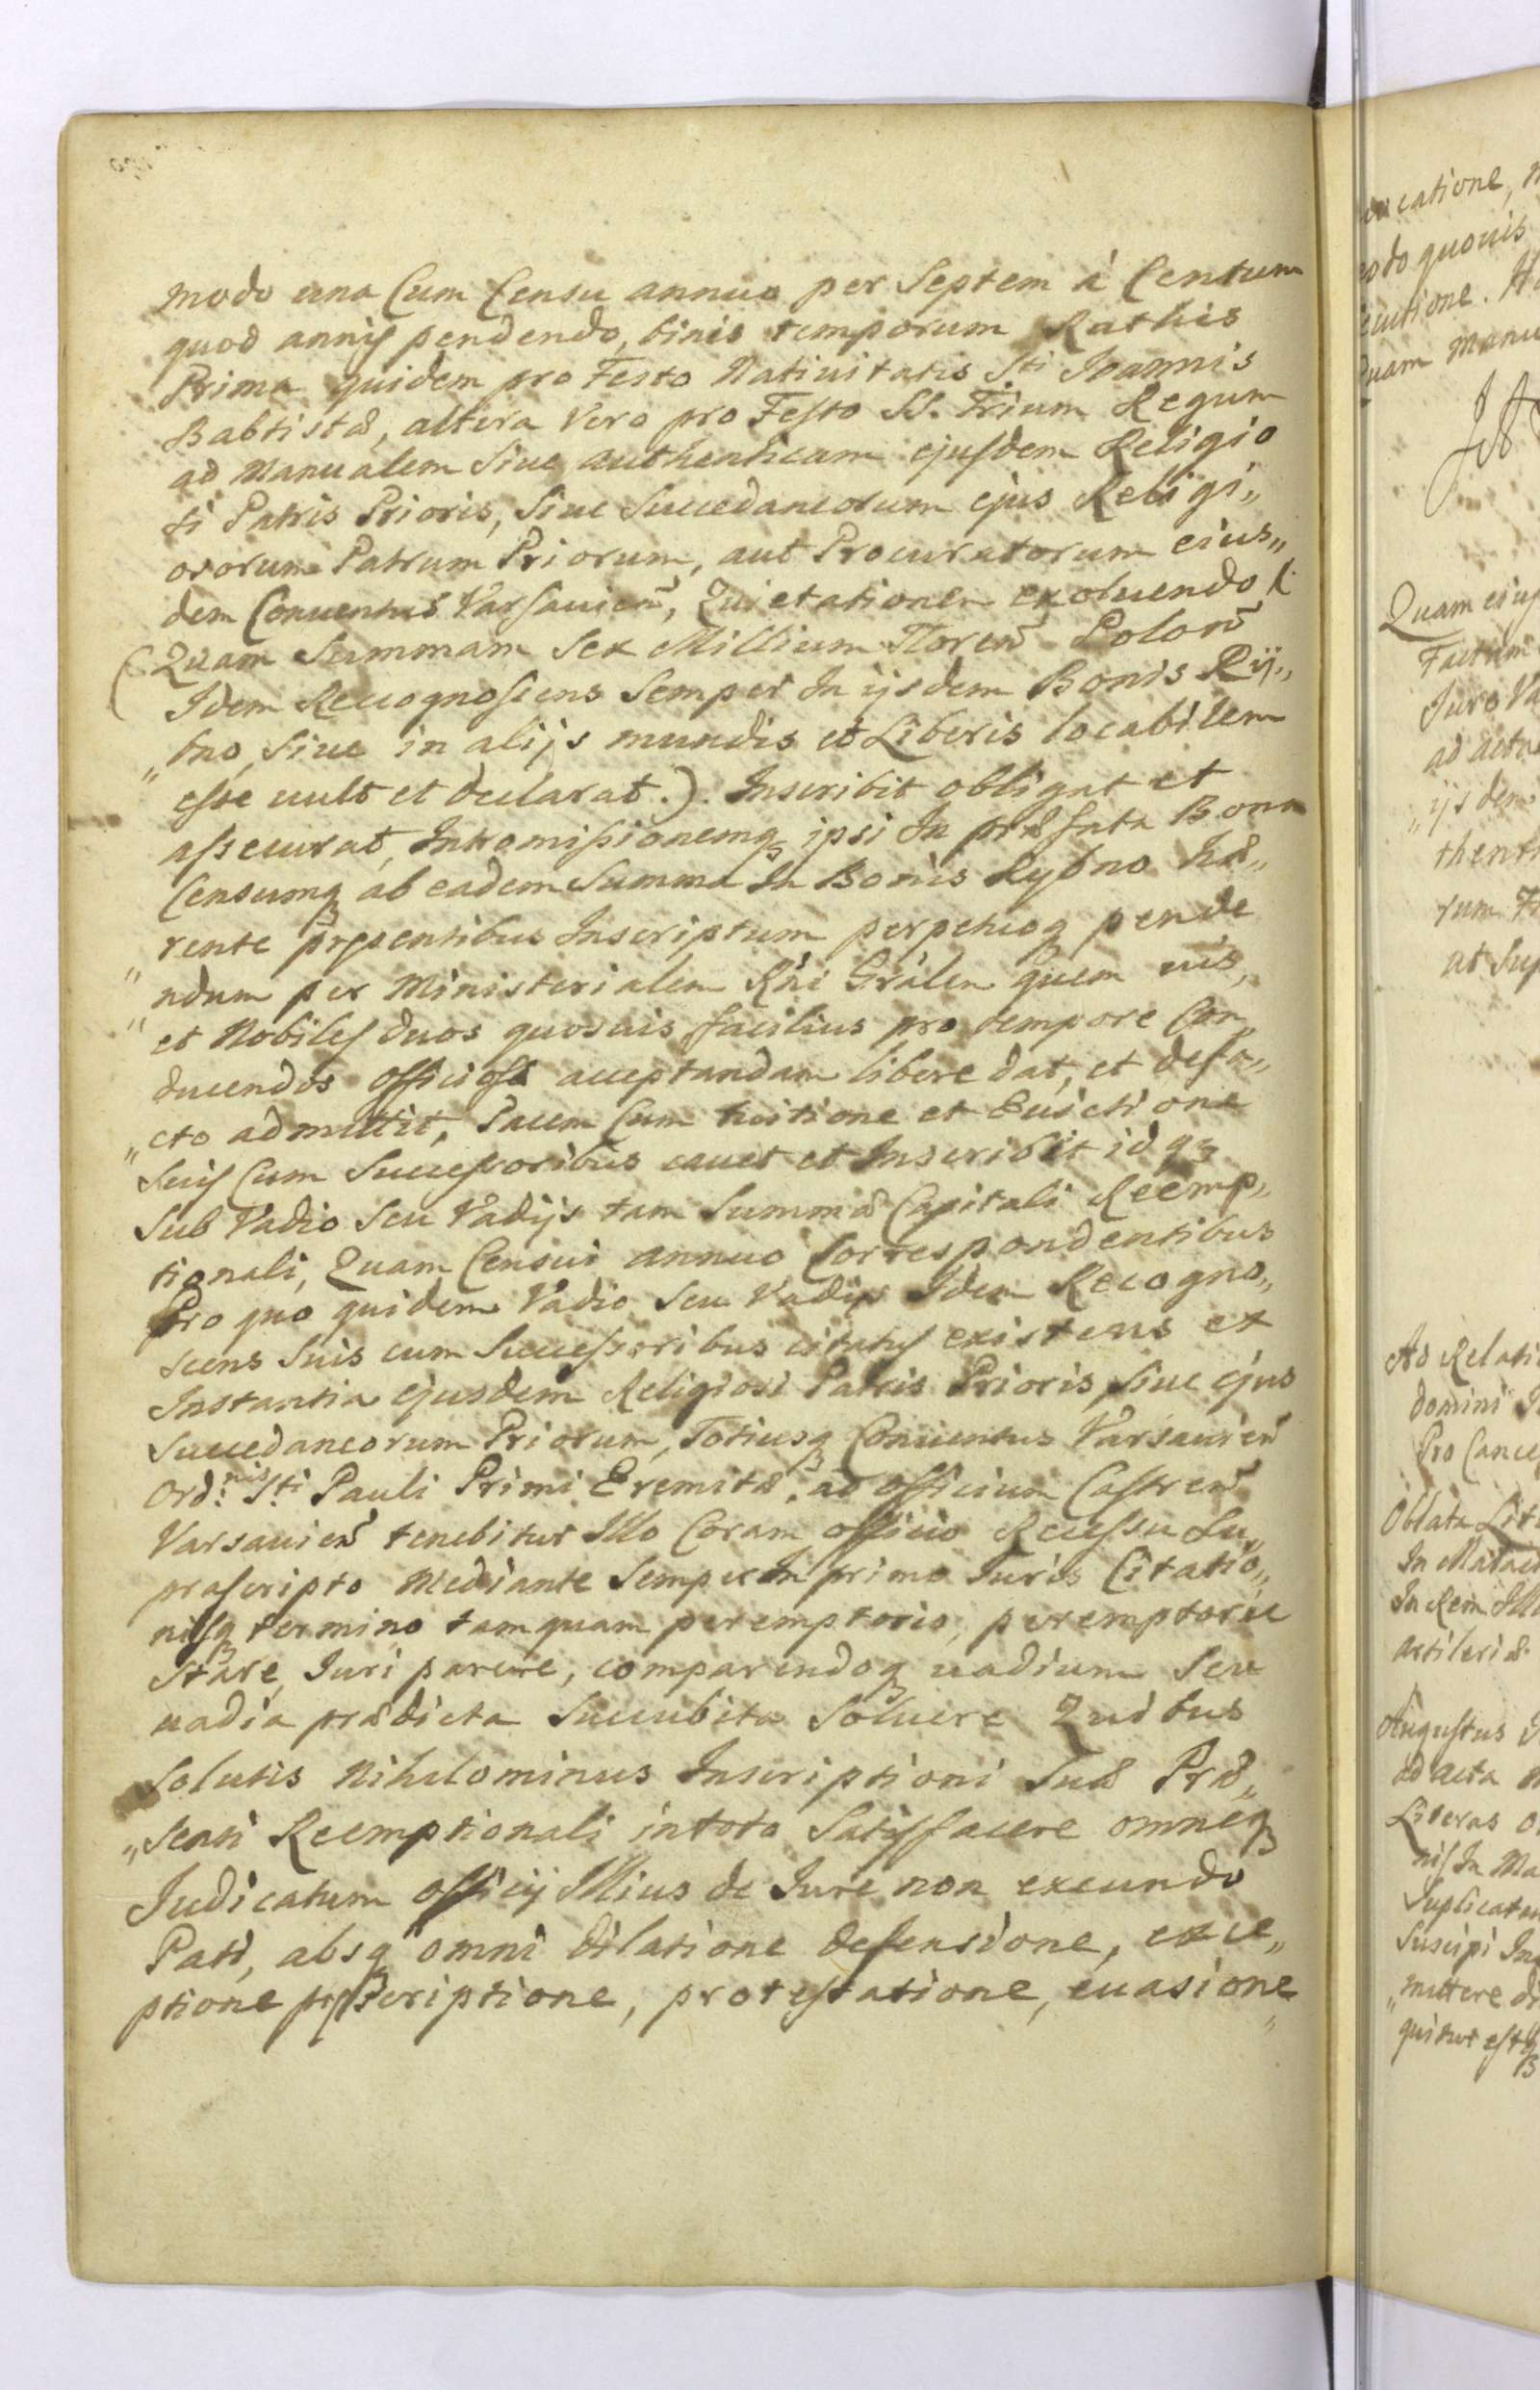 modo una Cum Censu annuo per Septem á Centum
quod annis pendendo, binis temporum Rathis
Prima quidem pro Festo Natiuitatis Sti Joannis
Babtistæ, altera Vero pro Festo SS. Trium Regum
ad Manualem Siue authenticam ejusdem Religio
si Patris Prioris, Siue Succedaneorum ejus Religi„
osorum Patrum Priorum, aut Procuratorum eius„
dem Conuentus Varsauień, Quietationem exoluendo
(Quam Summam Sex Millium Floreń Poloń
Idem Recognoscens Semper In ijsdem Bonis Rÿ„
„bno, Siue in alijs mundis et Liberis locabilem
esse uult et declarat.). Inscribit obligat et
assecurat, Intromissionemq3 ipsi In præfata Bona
Censumq3 ab eadem Summa In Bonis Rybno Hæ„
rente pręsentibus Inscriptum perpetuoq3 pende
„ndum per Ministerialem Rńi Gralem quem uis,
„et Nobiles duos quosuis facilius pro tempore Con„
ducendos officiosæ acceptandam libere dat, et defa„
„cto admittit, Pacem Cum tuitione et Euictione
Suis Cum Successoribus cauet et Inscribit idq3
Sub Vadio Seu Vadijs tam Summæ Capitali Reemp„
tionali, Quam Censui annuo Correspondentibus
Pro quo quidem Vadio Seu Vadijs Idem Recogno„
scens Suis cum Successoribus citatus existens ex
Instantia ejusdem Religiosi Patris Prioris, Siue ejus
Succedaneorum Priorum, Totiusq3 Conuentus Varsauień
Ord:nis Sti Pauli Primi Eremitæ, ad officium Castreń
Varsauień tenebitur Illo Coram officio Recessu Su„
prascripto Mediante Semper In primo Iuris Citatio„
nisq3 termino tamquam peremptorio, peremptoriæ
Stare, Iuri parere, comparendoq3 uadium Seu
uadia prædicta Succubita Soluere Quibus
Solutis Nihilominus Inscriptioni Suæ Præ„
„senti Reemptionali intoto Satisfacere omneq3
Judicatum officij Illius de Iure non exeundo
Pati, absq3 omni dilatione defensione, exce„
ptione pręscriptione, protestatione, euasione„
Quam eius
Factum
Juro
ad
„ijsdem
rum
at
Ad Relati
domini
Pro Cance
Oblata
In
In Rem
artileriæ
Augustus
ad acta
Literas
nis In Ma
Suscipi
„mittere